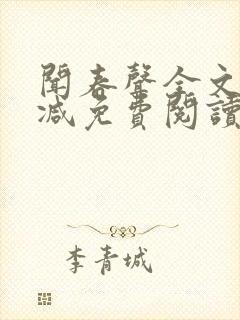 聞春聲全文
減免費閱讀
李青城